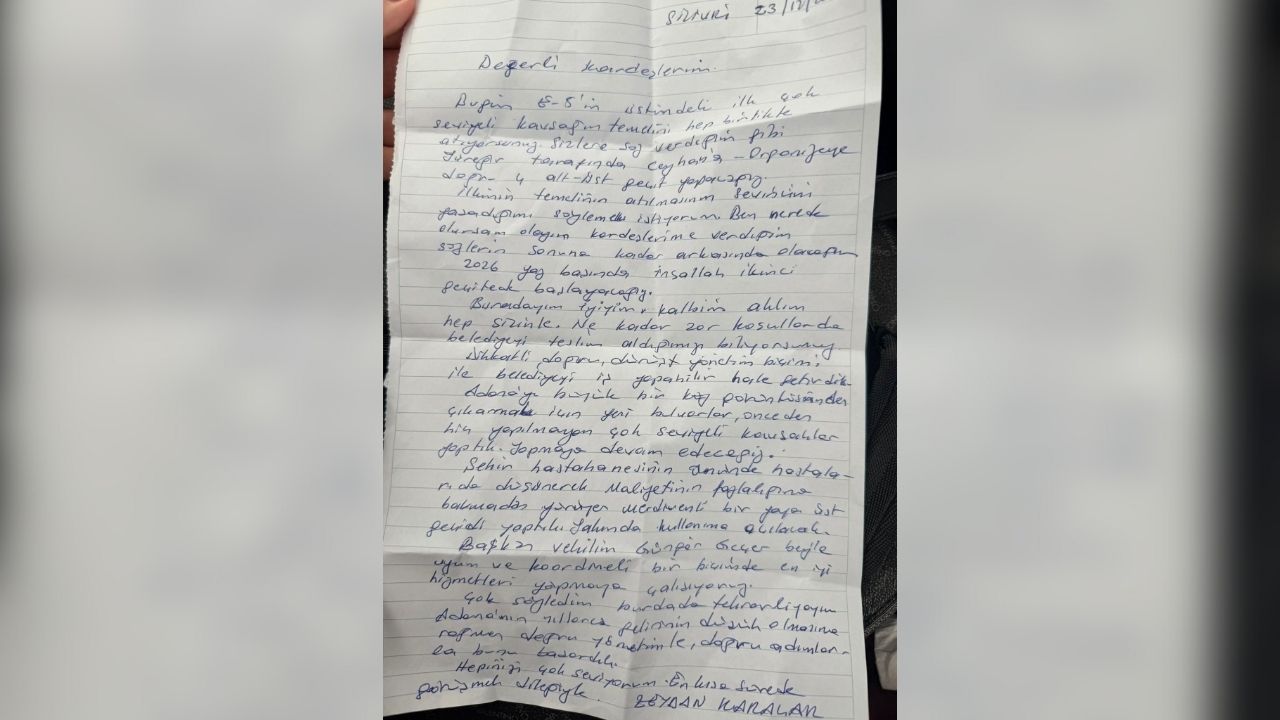 SİLİVRİ 23/12/
Değerli kardeşlerim.
Bugün E-5'in üstündeki ilk çok
seviyeli kavşağın temelini hep birlikte
atıyorsunuz. Sizlere söz verdiğim gibi
Yüreğir tarafında Ceyhan'a - Organizeye
doğru 4 alt-üst geçit yapacağız.
İlkinin temelinin atılmasının sevincini
yaşadığımı söylemek istiyorum. Ben nerede
olursam olayım kardeşlerime verdiğim
sözlerin sonuna kadar arkasında olacağım
2026 yaz başında inşallah ikinci
geçitede başlayacağız.
Buradayım iyiyim, kalbim aklım
hep sizinle. Ne kadar zor koşullarda
belediyeyi teslim aldığımızı biliyorsunuz.
Dikkatli, doğru, dürüst yönetim biçimi
ile belediyeyi iş yapabilir hale getirdik.
Adana'yı büyük bir köy görüntüsünden
çıkarmak için yeni bulvarlar, önceden
hiç yapılmayan çok seviyeli kavşaklar
yaptık. Yapmaya devam edeceğiz.
Şehir hastahanesinin önünde hastala-
rıda düşünerek Maliyetinin fazlalığına
bakmadan yürüyen merdivenli bir yaya üst
geçidi yaptık. Yakında kullanıma açılacak.
Başkan vekilim Güngör Geçer beyle
uyum ve koordineli bir biçimde en iyi
hizmetleri yapmaya çalışıyoruz.
Çok söyledim burdada tekrarlıyayım
Adana'nın yıllarca gelirinin düşük olmasına
rağmen doğru yönetimle, doğru adımlar-
la bunu başardık.
Hepinizi çok seviyorum. En kısa sürede
görüşmek dileğiyle. ZEYDAN KARALAR